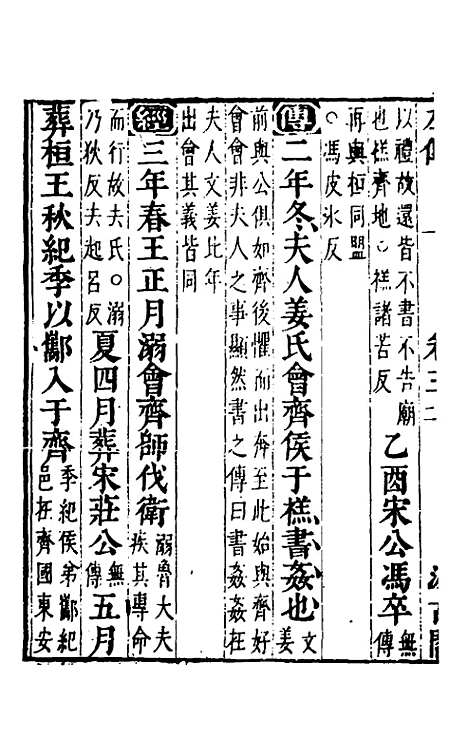 以禮故還皆不書不告廟
也禚齊地○禚諸若反
乙酉宋公馮卒
無
傳
再與桓同盟
○馮皮氷反
傳二年冬夫人姜氏會齊侯于禚書姦也
文
姜
前與公俱如齊後懼而出奔至此始與齊好
會會非夫人之事顯然書之傳曰書姦姦在
夫人文姜比年
出會其義皆同
經三年春王正月溺會齊師伐衛
溺魯大夫
疾其專命
而行故去氏○溺
乃狄反去起呂反
夏四月葬宋莊公
無
傳
五月
葬桓王秋紀季以酅入于齊
季紀侯弟酅紀
邑在齊國東安